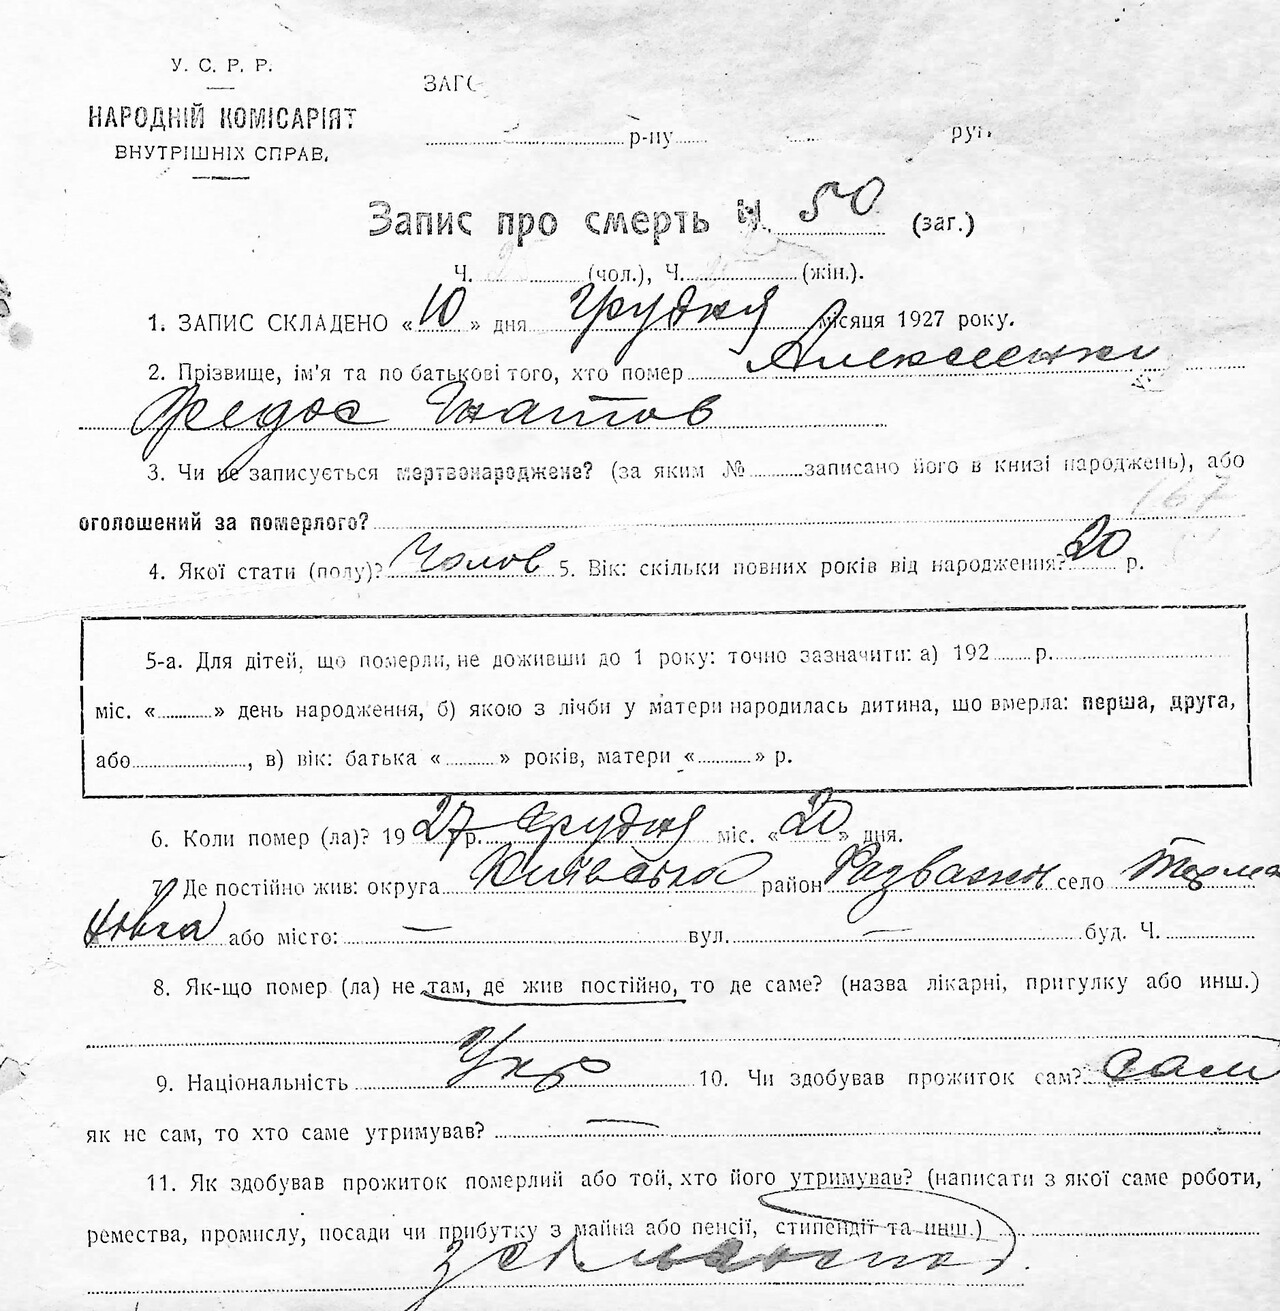 У. С. Р. Р.
НАРОДНІЙ КОМІСАРІЯТ
ВНУТРІШНІХ СПРАВ.
ЗАГС
р-ну
Запис про смерть Ч. 50 (заг.)
Ч. (чол.), Ч. (жін.).
1. ЗАПИС СКЛАДЕНО «10» дня грудня місяця 1927 року.
2. Прізвище, ім'я та по батькові того, хто помер Алексеенко
Федос Гнатов
3. Чи не записується мертвонароджене? (за яким № записано його в книзі народжень), або
оголошений за померлого?
167
4. Якої стати (полу)? Чолов 5. Вік: скільки повних років від народження? 20 р.
5-а. Для дітей, що померли, не доживши до 1 року: точно зазначити: а) 192 р.
міс. « » день народження, б) якою з лічби у матери народилась дитина, що вмерла: перша, друга,
або , в) вік: батька « » років, матери « » р.
6. Коли помер (ла)? 1927 р. Грудня міс. «20» дня.
7. Де постійно жив: округа Київська район Розважн село
або місто: — вул. — буд. Ч.
8. Як-що помер (ла) не там, де жив постійно, то де саме? (назва лікарні, притулку або инш.)
9. Національність Укр 10. Чи здобував прожиток сам? сам
як не сам, то хто саме утримував? —
11. Як здобував прожиток померлий або той, хто його утримував? (написати з якої саме роботи,
ремества, промислу, посади чи прибутку з майна або пенсії, стипендії та инш.)